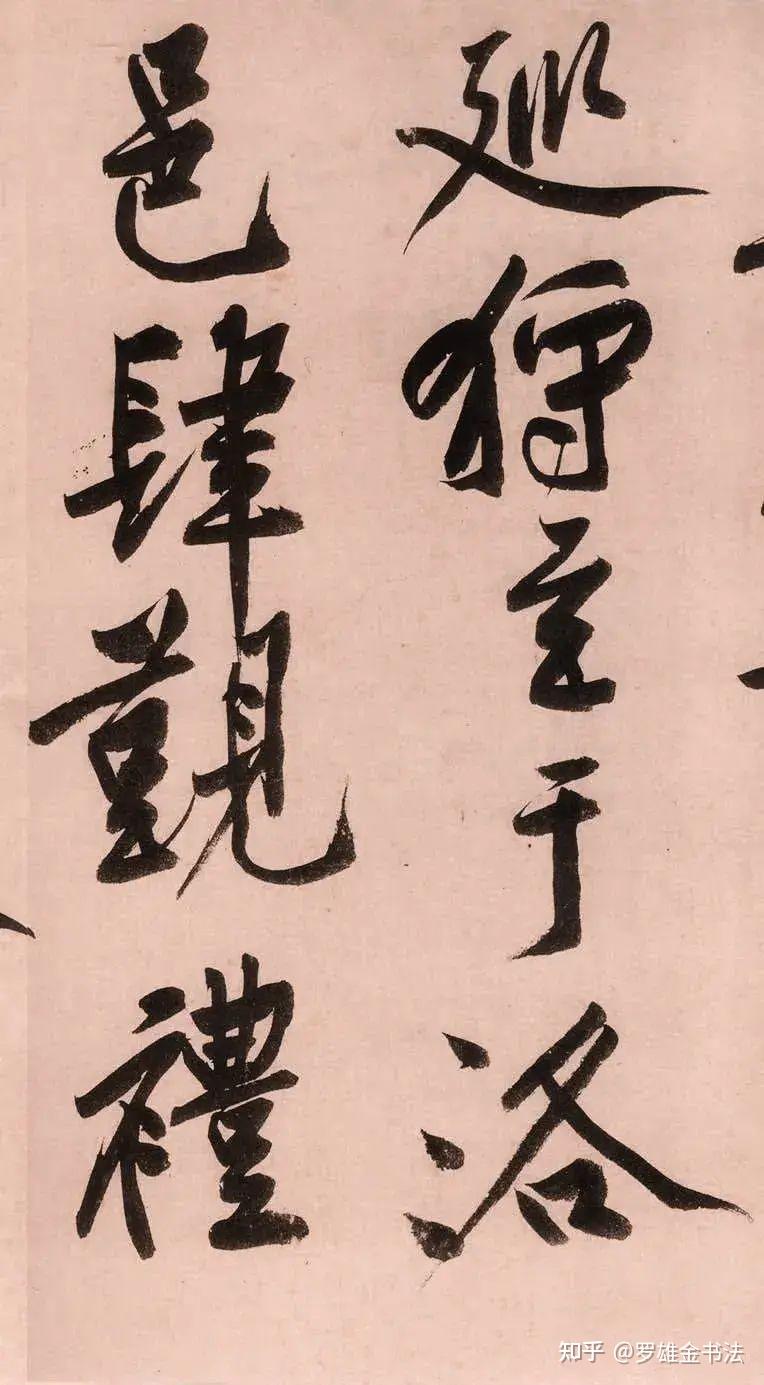 巡狩至于洛
邑肆覲禮
知乎 @罗雄金书法